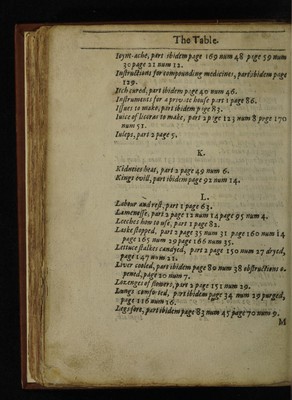 The Table.
Ioynt-ache, part ibidem page 169 num 48 page 59 num
30 page 21 num 12.
Instructions for compounding medicines, part ibidem page
129.
Itch cured, part ibidem page 40 num 46.
Instruments for a private house part 1 page 86.
Issues to make, part ibidem page 83.
Iuice of licoras to make, part 2 page 123 num 8 page 170
num 51.
Iuleps, part 2 page 5.
K.
Kidneies heat, part 2 page 49 num 6.
Kings evill, part ibidem page 92 num 14.
L.
Labour and rest, part 1 page 63.
Lamenesse, part 2 page 12 num 14 page 95 num 4.
Leeches how to use, part 1 page 82.
Laske stopped, part 2 page 35 num 31 page 160 num 14
page 165 num 29 page 166 num 35.
Lettuce stalkes candyed, part 2 page 150 num 27 dryed,
page 147 num 21.
Liver cooled, part ibidem page 80 num 38 obstructions o-
pened, page 20 num 7.
Lozenges of flowers, part 2 page 151 num 29.
Lungs comforted, part ibidem page 34 num 29 purged,
page 116 num 26.
Legs sore, part ibidem page 83 num 45 page 70 num 9.
M